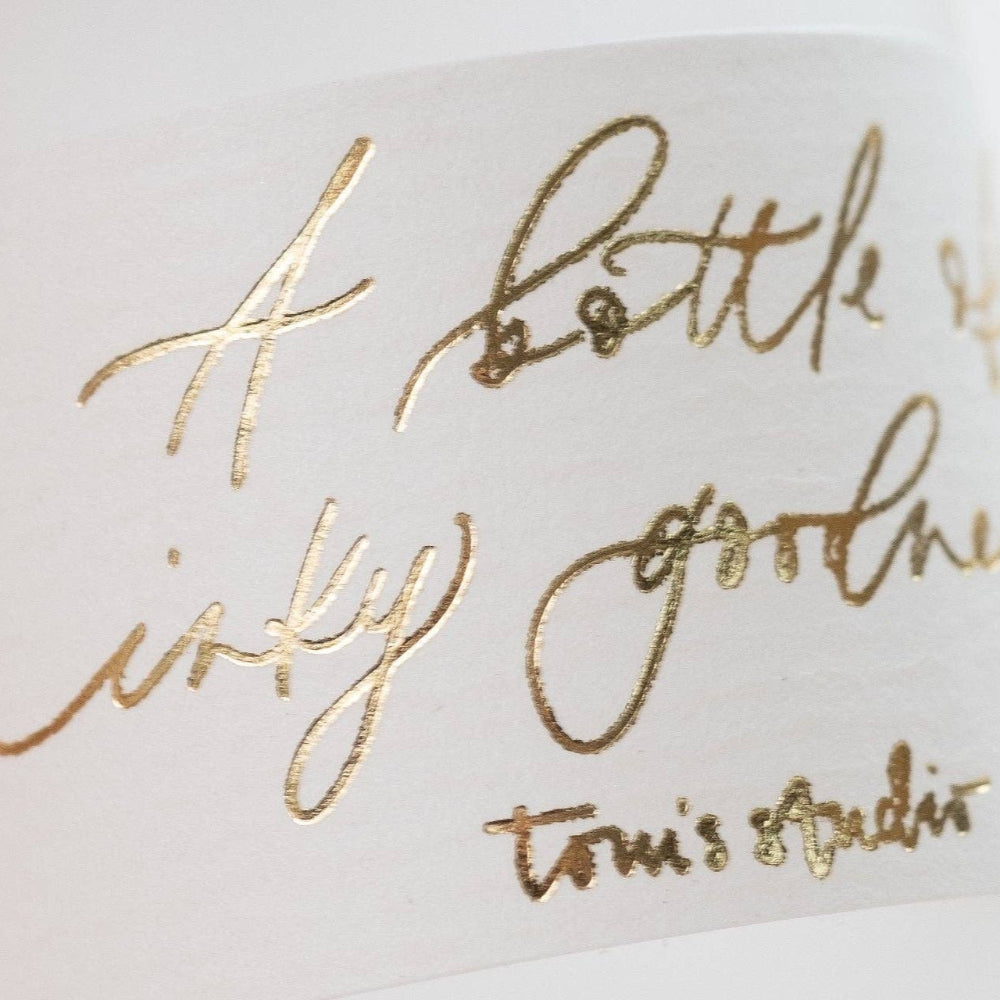 A bottle of
inky goodne
tom's studio